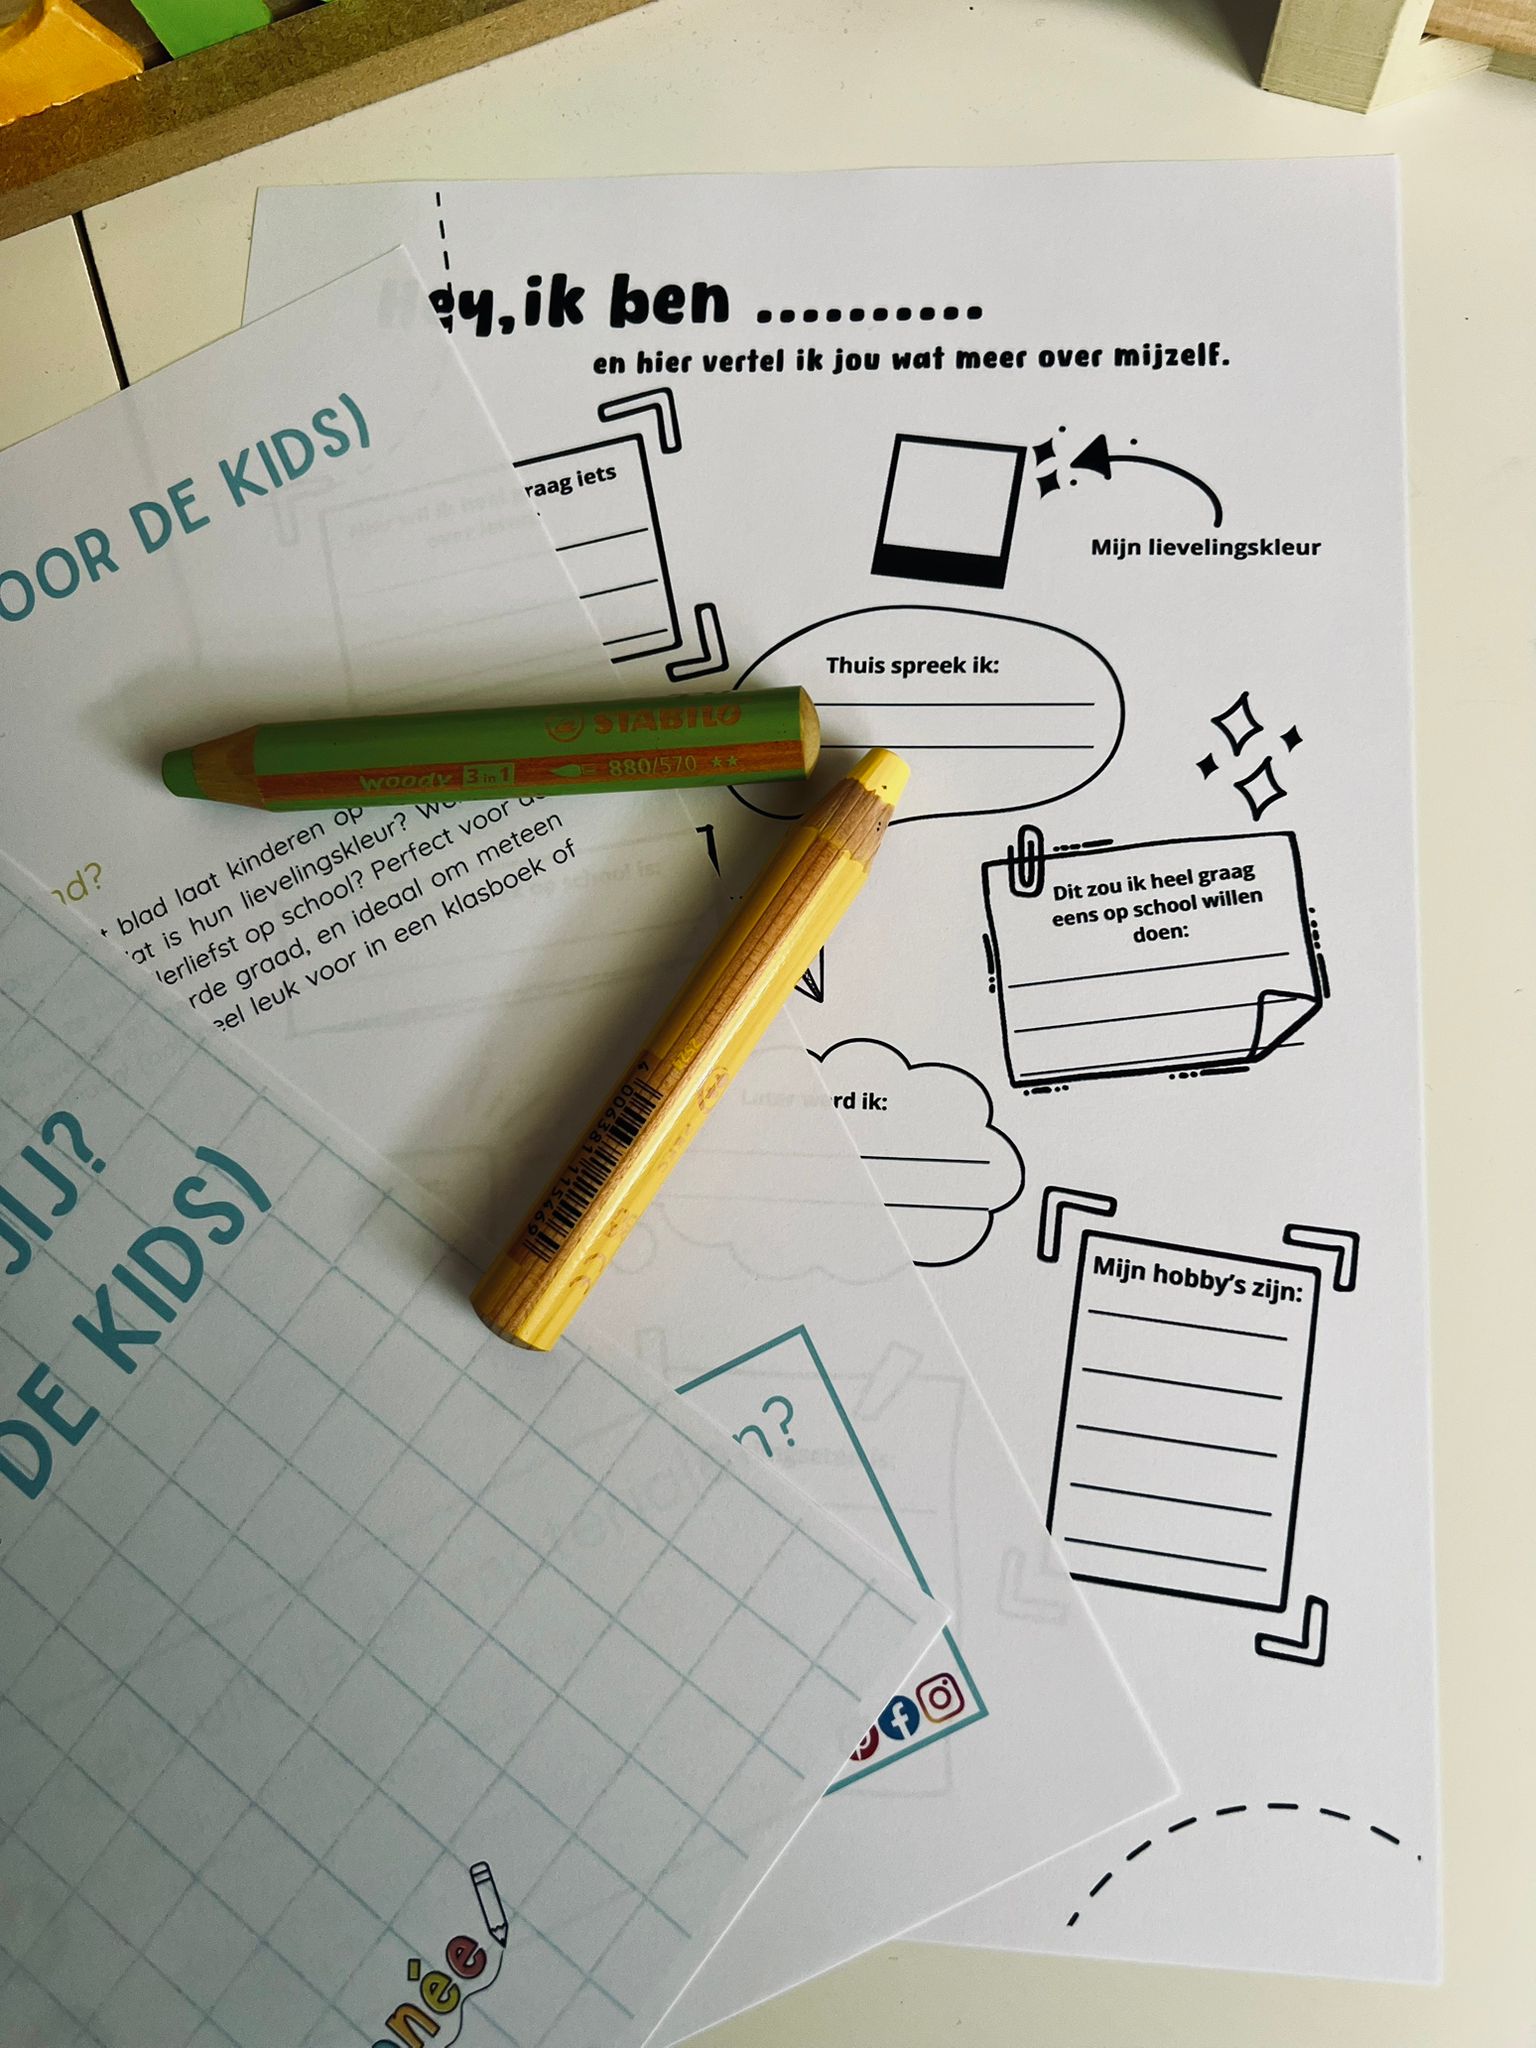 Hey, ik ben ..........
en hier vertel ik jou wat meer over mijzelf.
OOR DE KIDS)
raag iets
Mijn lievelingskleur
Thuis spreek ik:
STABILO
woody 3 in 1 880/570 **
nd?
blad laat kinderen op
at is hun lievelingskleur?
lerliefst op school? Perfect voor de
rde graad, en ideaal om meteen
eel leuk voor in een klasboek of
Dit zou ik heel graag
eens op school willen
doen:
rd ik:
4 006381 115469
JIJ?
DE KIDS)
Mijn hobby's zijn:
n?
née